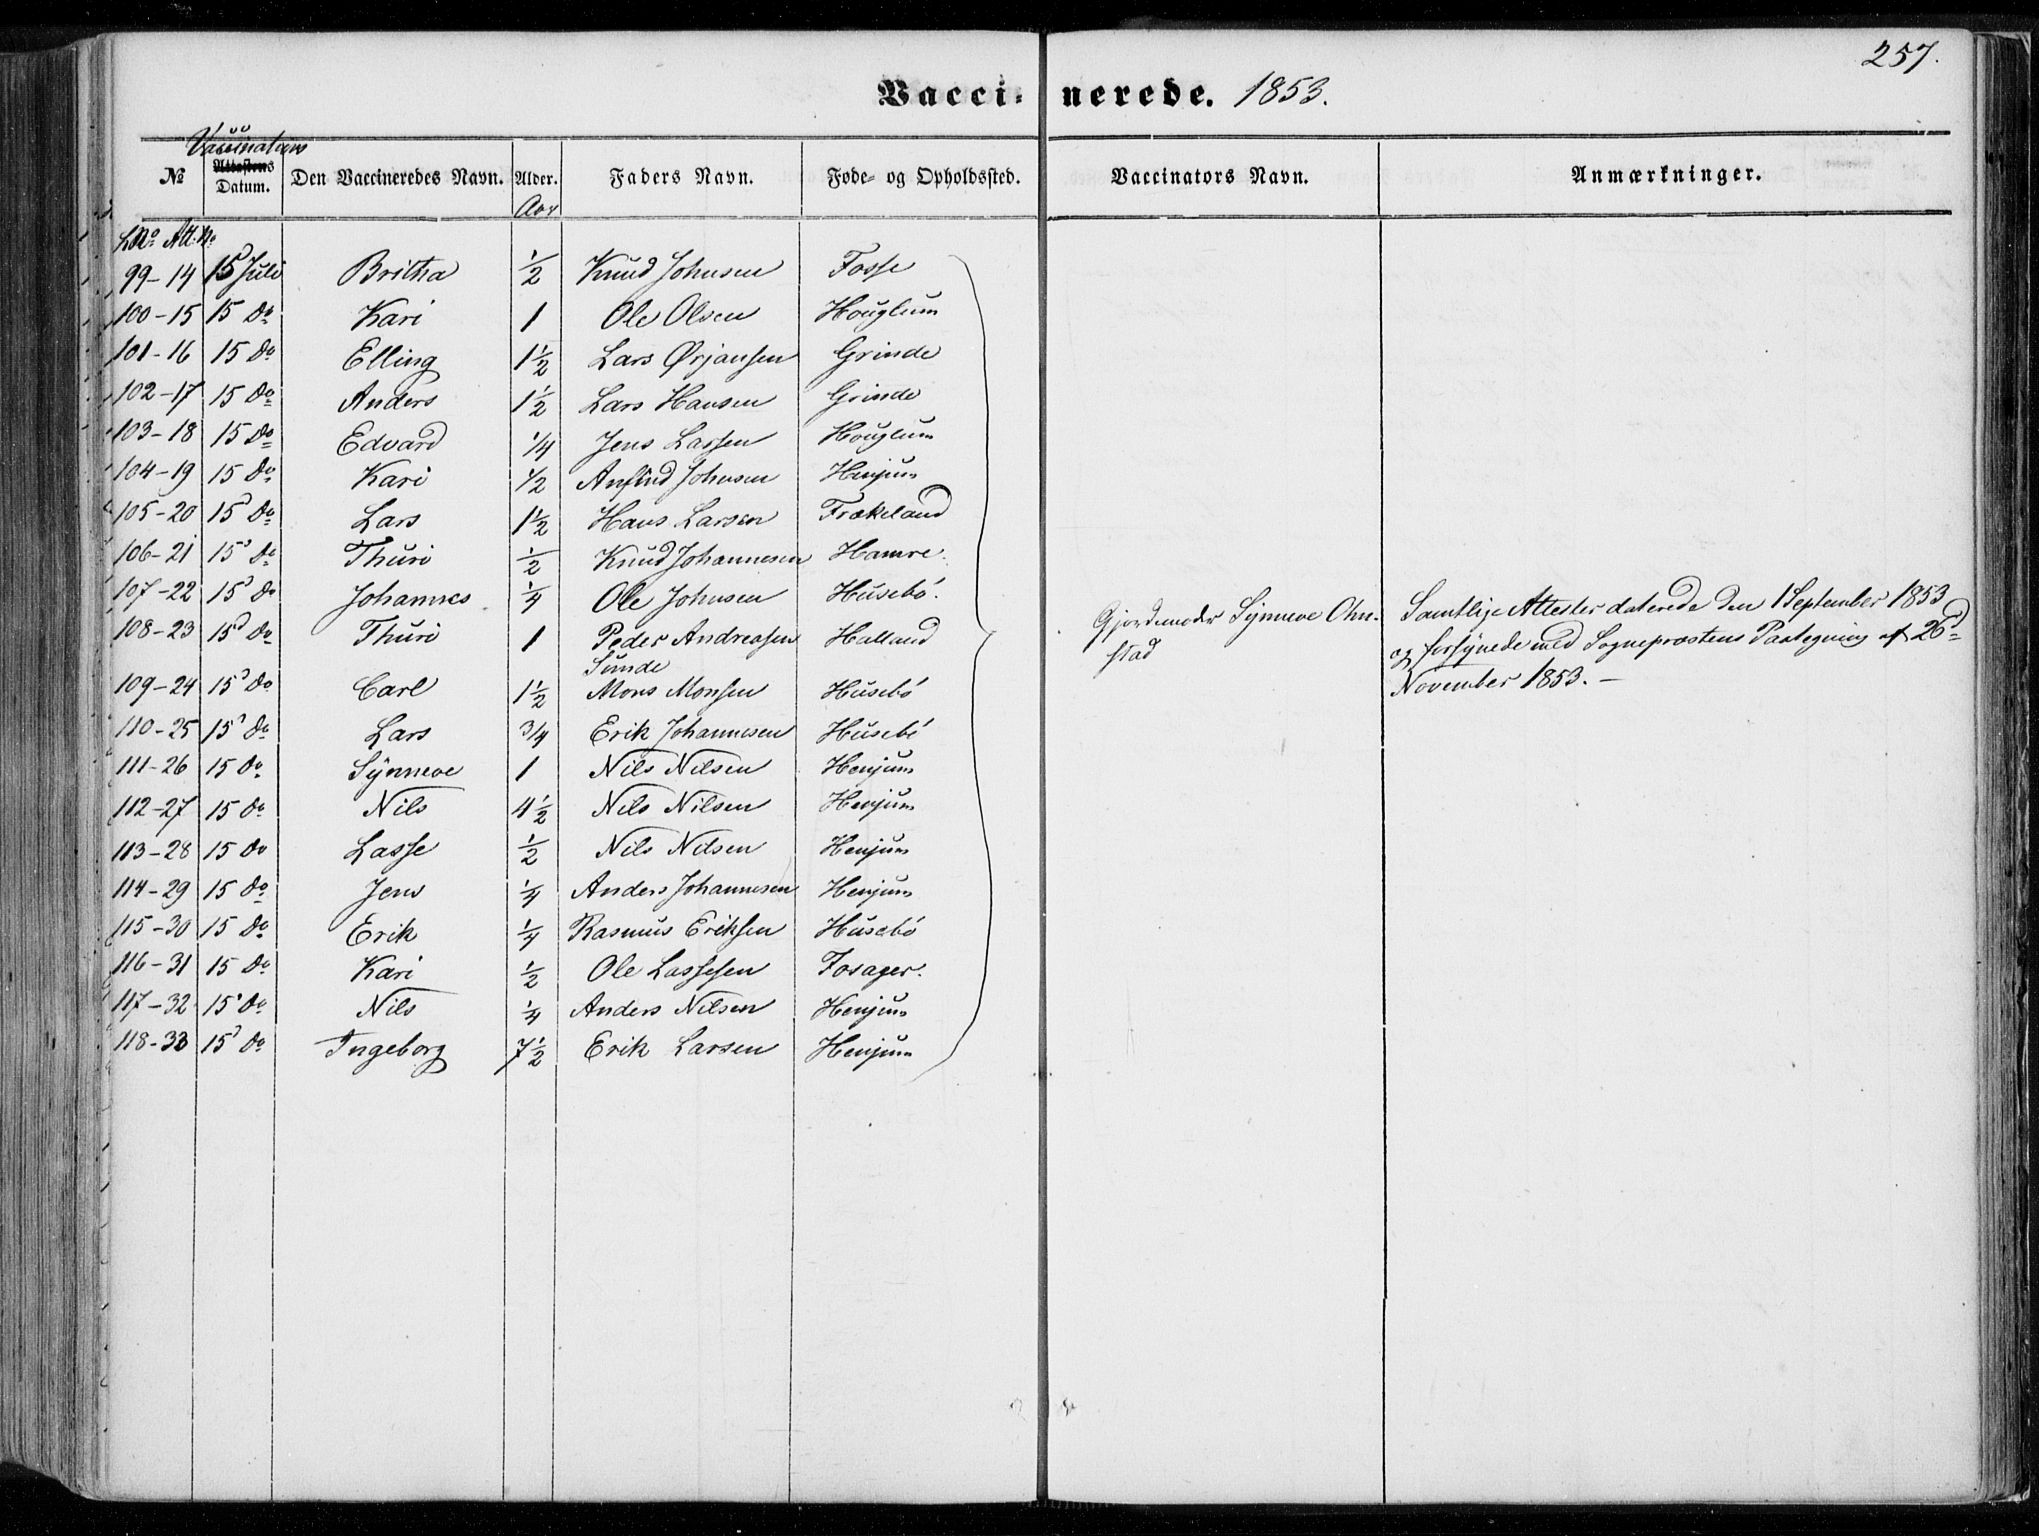 257.
Vaccinerede. 1853.
Vaccinations
№ Attestens Datum. Den Vaccineredes Navn. Alder. Faders Navn. Føde- og Opholdssted. Vaccinators Navn. Anmærkninger.
Aar
LNo Att:No
99-14 15 Juli Britha 1/2 Knud Johnsen Fosse
100-15 15 Do Kari 1 Ole Olsen Houglum
101-16 15 Do Elling 1 1/2 Lars Ørjansen Grinde
102-17 15 Do Anders 1 1/2 Lars Hansen Grinde
103-18 15 Do Edvard 1/4 Jens Larsen Houglum
104-19 15 Do Kari 1/2 Anfind Johnsen Henjum
105-20 15 Do Lars 1 1/2 Hans Larsen Frækeland
106-21 15 Do Thuri 1/2 Knud Johannesen Hamre
107-22 15 Do Johannes 1/4 Ole Johnsen Husebö.
108-23 15 Do Thuri 1 Peder Andreasen Halland
Sunde
109-24 15 Do Carl 1 1/2 Mons Monsen Husebö
110-25 15 Do Lars 3/4 Erik Johannesen Husebö
111-26 15 Do Synneve 1 Nils Nilsen Henjum
112-27 15 Do Nils 4 1/2 Nils Nilsen Henjum
113-28 15 Do Lasse 1/2 Nils Nilsen Henjum
114-29 15 Do Jens 1/4 Anders Johannesen Henjum
115-30 15 Do Erik 1/4 Rasmus Eriksen Husebö
116-31 15 Do Kari 1/2 Ole Lassesen Fosager.
117-32 15 Do Nils 1/4 Anders Nilsen Henjum
118-33 15 Do Ingeborg 7 1/2 Erik Larsen Henjum
Gjordemoder Synneve Ohn-
stad
Samtlige Attester daterede den 1 September 1853
og forsynede med Sognepræstens Paategning af 26d
November 1853. –